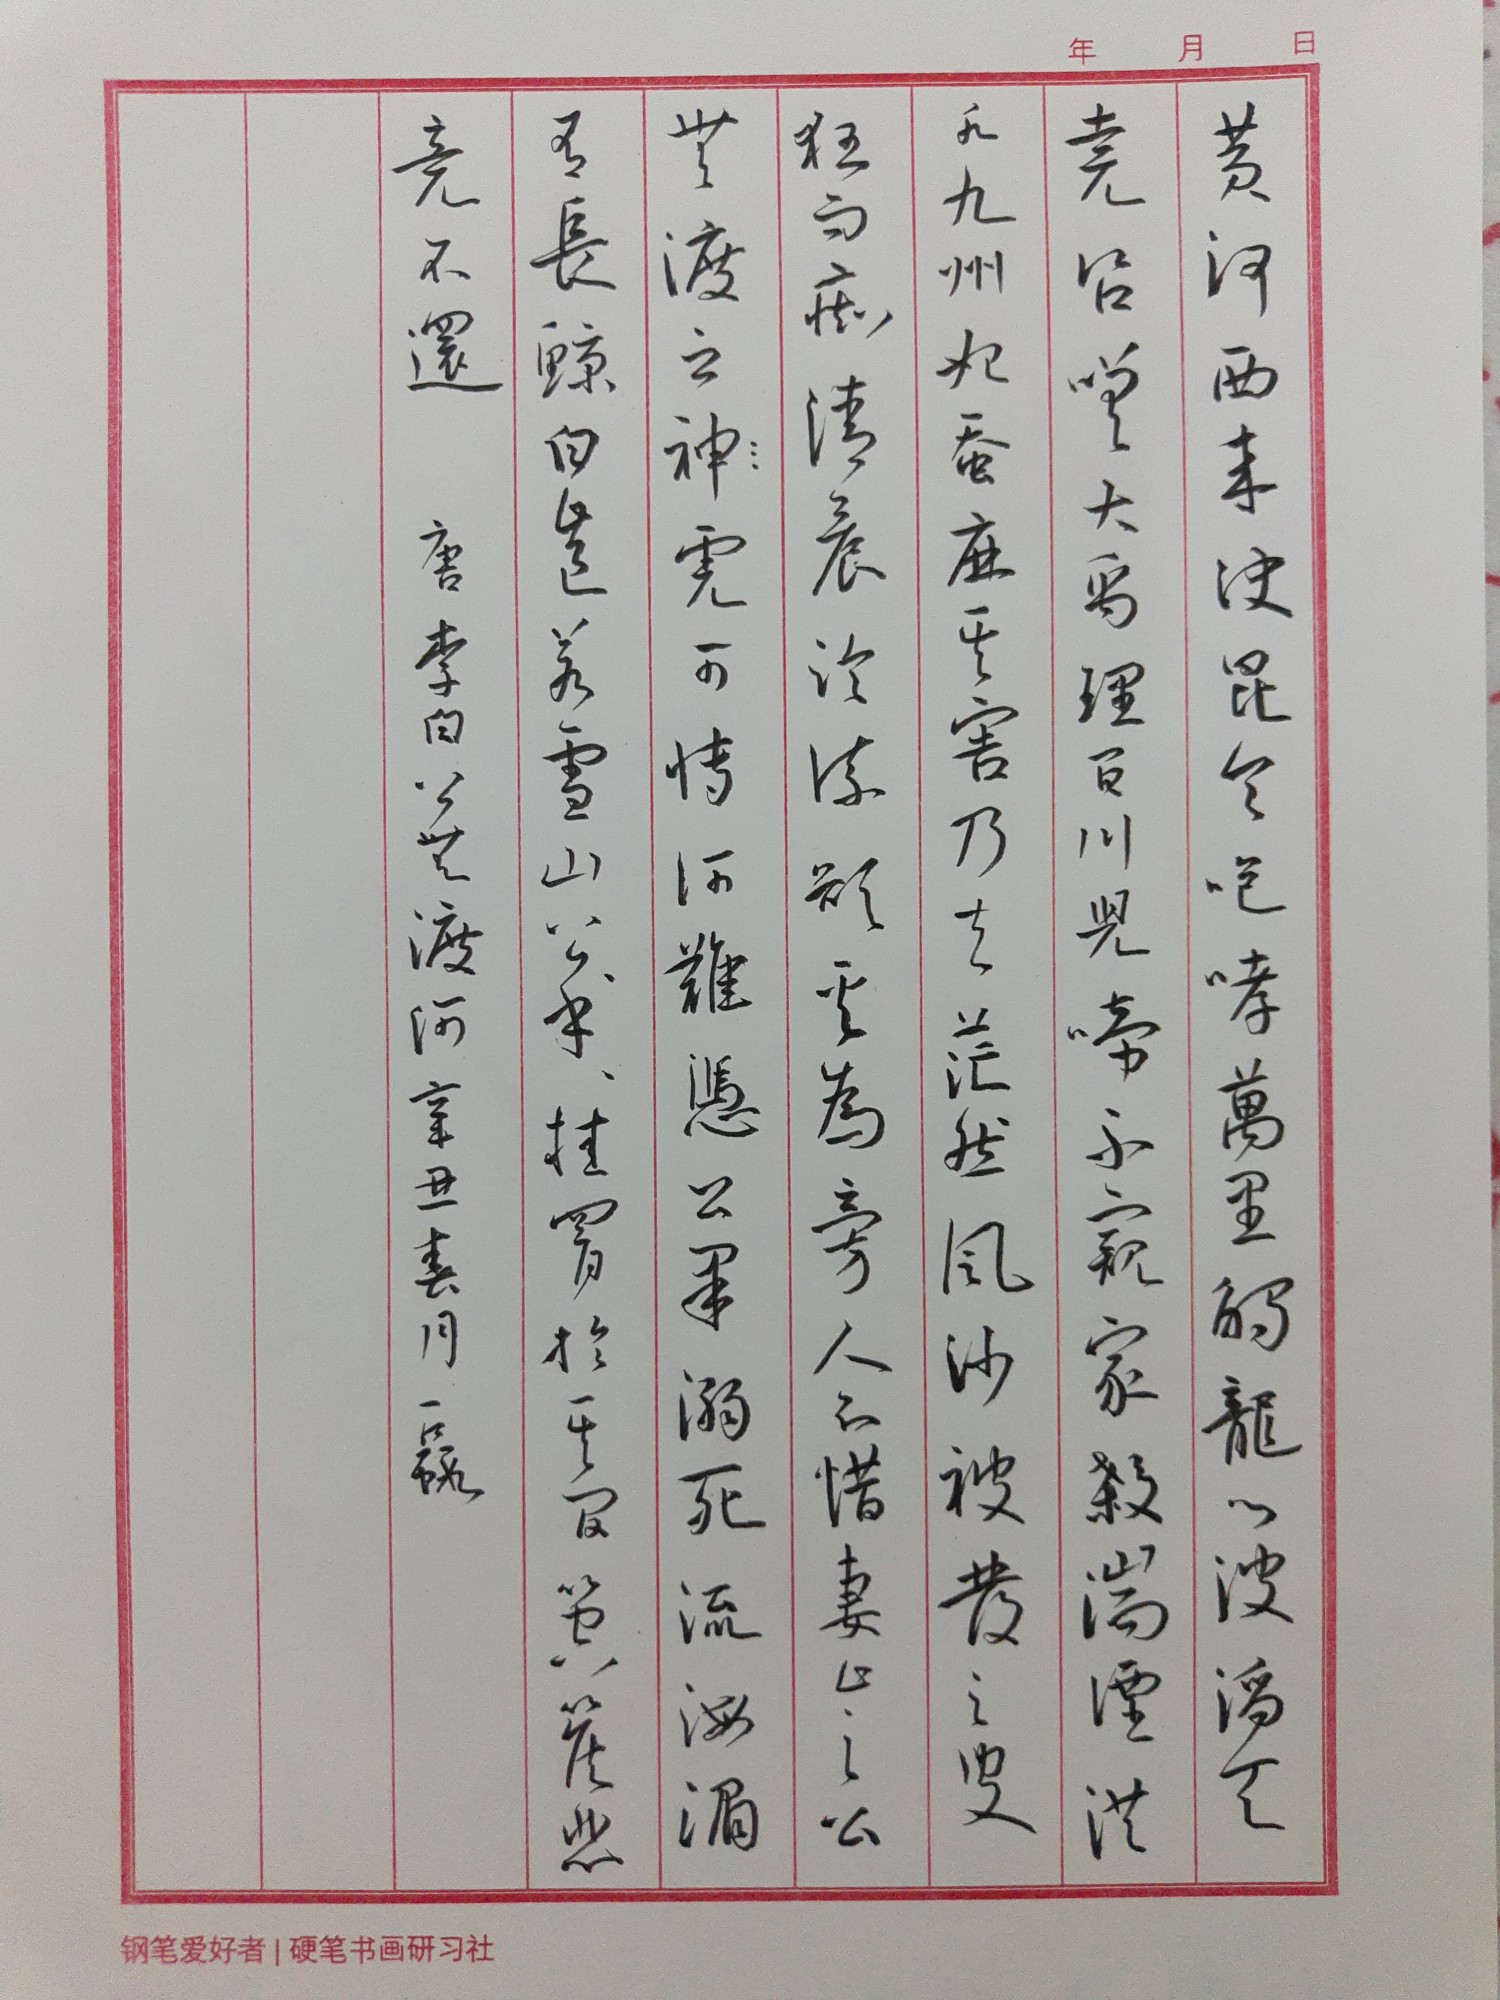 年 月 日
黄河西来決昆仑咆哮萬里触龍门波滔天
堯咨嗟大禹理百川兒啼不窺家殺湍湮洪
水九州始蚕麻其害乃去茫然風沙被發之叟
狂而痴清晨临流欲奚為旁人不惜妻止之公
無渡之神虎可搏河難憑公果溺死流海湄
有長鯨白齒若雪山公、乎、挂罥於其间箜篌悲
竟不還 唐李白公無渡河辛丑春月
钢笔爱好者 | 硬笔书画研习社